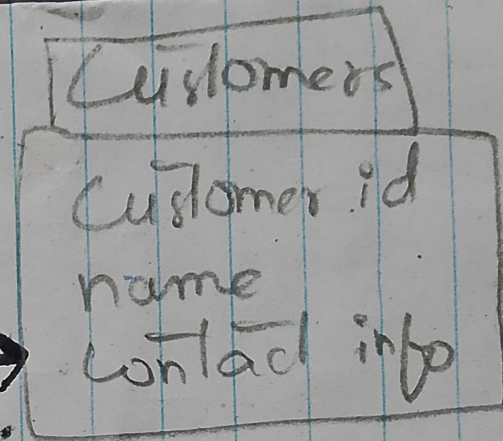 Customers
Customer id
name
contact info